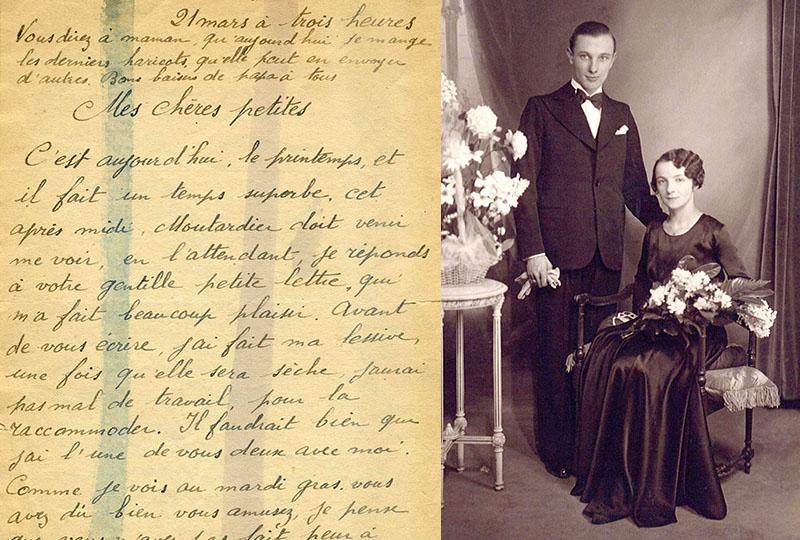 21 mars à trois heures
Vous direz à maman, qu'aujourd'hui je mange
les derniers haricots, qu'elle peut en envoyer
d'autres. Bons baisers de papa à tous
Mes chères petites
C'est aujourd'hui, le printemps, et
il fait un temps superbe. cet
après midi, Moutardier doit venir
me voir, en l'attendant, je réponds
à votre gentille petite lettre, qui
m'a fait beaucoup plaisir. Avant
de vous écrire, j'ai fait ma lessive,
une fois qu'elle sera sèche, j'aurai
pas mal de travail, pour la
raccommoder. Il faudrait bien que
j'ai l'une de vous deux avec moi.
Comme je vois au mardi gras. vous
avez dû bien vous amusez, je pense
que vous n'avez pas fait peur à